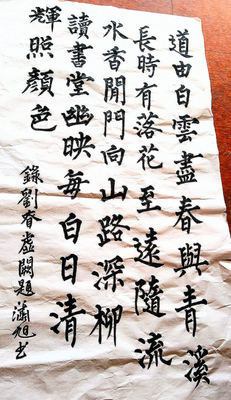 道由白雲盡春與青溪
長時有落花至遠隨流
水香閒門向山路深柳
讀書堂幽映每白日清
輝照顏色
錄劉眘虛闕題瀟旭书